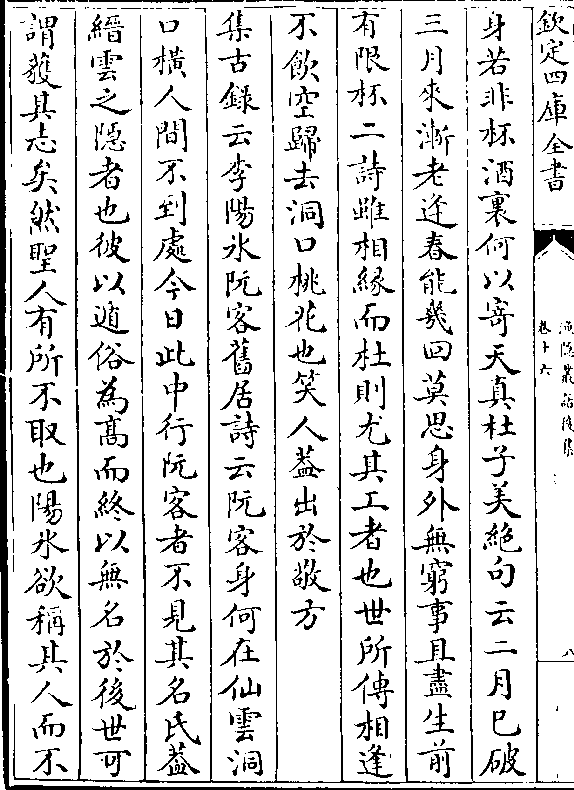 欽定四庫全書
漁隱叢話後集
卷十六
八
身若非杯酒裏何以寄天真杜子美絶句云二月已破
三月來漸老逢春能幾回莫思身外無窮事且盡生前
有限杯二詩雖相縁而杜則尤其工者也世所傳相逢
不飲空歸去洞口桃花也笑人葢出於敬方
集古録云李陽氷阮客舊居詩云阮客身何在仙雲洞
口橫人間不到處今日此中行阮客者不見其名氏葢
縉雲之隱者也彼以遁俗為髙而終以無名於後世可
謂獲其志矣然聖人有所不取也陽氷欲稱其人而不